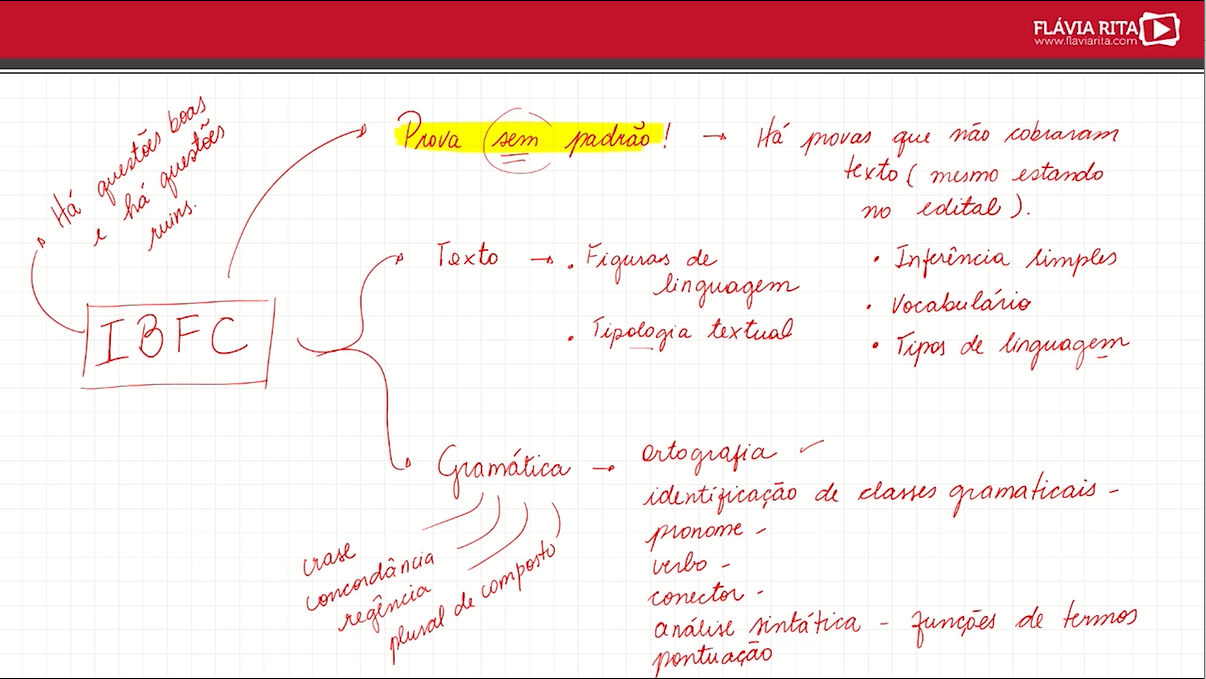 FLÁVIA RITA
www.flaviarita.com
Há questões boas
e há questões
ruins.
IBFC
Prova sem padrão! → Há provas que não cobraram
texto ( mesmo estando
no edital ).
Texto → • Figuras de
linguagem
• Tipologia textual
• Inferência simples
• Vocabulário
• Tipos de linguagem
Gramática → ortografia ✓
identificação de classes gramaticais -
pronome -
verbo -
conector -
análise sintática - funções de termos
pontuação
crase
concordância
regência
plural de composto